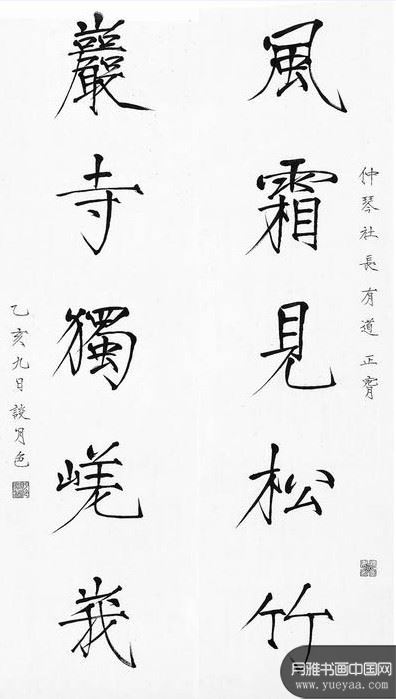 仲琴社長有道 正
風霜見松竹
巖寺獨嵯峩
乙亥九日談月色
月雅书画中国网
www.yueyaa.com